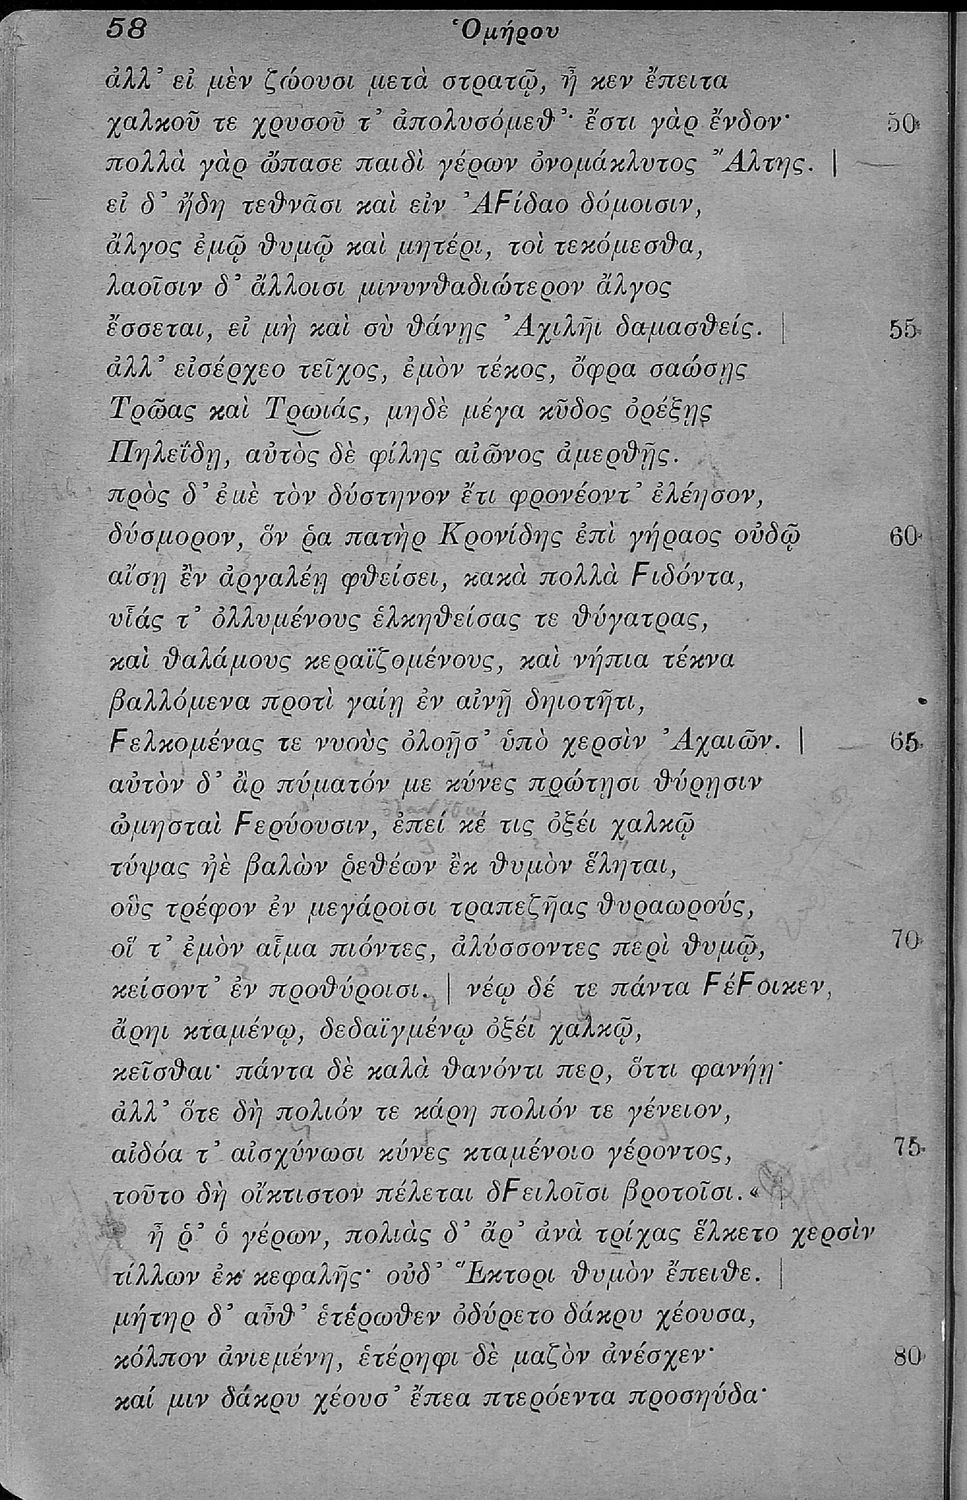 58 Ὁμήρου
ἀλλ’ εἰ μὲν ζώουσι μετὰ στρατῷ, ἦ κεν ἔπειτα
χαλκοῦ τε χρυσοῦ τ’ ἀπολυσόμεθ’· ἔστι γὰρ ἔνδον· 50
πολλὰ γὰρ ὤπασε παιδὶ γέρων ὀνομάκλυτος Ἄλτης. |
εἰ δ’ ἤδη τεθνᾶσι καὶ εἰν Ἀϝίδαο δόμοισιν,
ἄλγος ἐμῷ θυμῷ καὶ μητέρι, τοὶ τεκόμεσθα,
λαοῖσιν δ’ ἄλλοισι μινυνθαδιώτερον ἄλγος
ἔσσεται, εἰ μὴ καὶ σὺ θάνῃς Ἀχιλῆι δαμασθείς. | 55
ἀλλ’ εἰσέρχεο τεῖχος, ἐμὸν τέκος, ὄφρα σαώσῃς
Τρῶας καὶ Τρωιάς, μηδὲ μέγα κῦδος ὀρέξῃς
Πηλεΐδῃ, αὐτὸς δὲ φίλης αἰῶνος ἀμερθῇς.
πρὸς δ’ ἐμὲ τὸν δύστηνον ἔτι φρονέοντ’ ἐλέησον,
δύσμορον, ὅν ῥα πατὴρ Κρονίδης ἐπὶ γήραος οὐδῷ 60
αἴσῃ ἒν ἀργαλέῃ φθείσει, κακὰ πολλὰ ϝιδόντα,
υἷάς τ’ ὀλλυμένους ἑλκηθείσας τε θύγατρας,
καὶ θαλάμους κεραϊζομένους, καὶ νήπια τέκνα
βαλλόμενα προτὶ γαίῃ ἐν αἰνῇ δηιοτῆτι,
ϝελκομένας τε νυοὺς ὀλοῇσ’ ὑπὸ χερσὶν Ἀχαιῶν. | 65
αὐτὸν δ’ ἂρ πύματόν με κύνες πρώτῃσι θύρῃσιν
ὠμησταὶ ϝερύουσιν, ἐπεί κέ τις ὀξέι χαλκῷ
τύψας ἠὲ βαλὼν ῥεθέων ἒκ θυμὸν ἕληται,
οὓς τρέφον ἐν μεγάροισι τραπεζῆας θυραωρούς,
οἵ τ’ ἐμὸν αἷμα πιόντες, ἀλύσσοντες περὶ θυμῷ, 70
κείσοντ’ ἐν προθύροισι. | νέῳ δέ τε πάντα ϝέϝοικεν,
ἄρηι κταμένῳ, δεδαϊγμένῳ ὀξέι χαλκῷ,
κεῖσθαι· πάντα δὲ καλὰ θανόντι περ, ὅττι φανήῃ·
ἀλλ’ ὅτε δὴ πολιόν τε κάρη πολιόν τε γένειον,
αἰδόα τ’ αἰσχύνωσι κύνες κταμένοιο γέροντος, 75
τοῦτο δὴ οἴκτιστον πέλεται δϝειλοῖσι βροτοῖσι.«
ἦ ῥ’ ὁ γέρων, πολιὰς δ’ ἄρ’ ἀνὰ τρίχας ἕλκετο χερσὶν
τίλλων ἐκ κεφαλῆς· οὐδ’ Ἕκτορι θυμὸν ἔπειθε. |
μήτηρ δ’ αὖθ’ ἑτέρωθεν ὀδύρετο δάκρυ χέουσα,
κόλπον ἀνιεμένη, ἑτέρηφι δὲ μαζὸν ἀνέσχεν· 80
καί μιν δάκρυ χέουσ’ ἔπεα πτερόεντα προσηύδα·